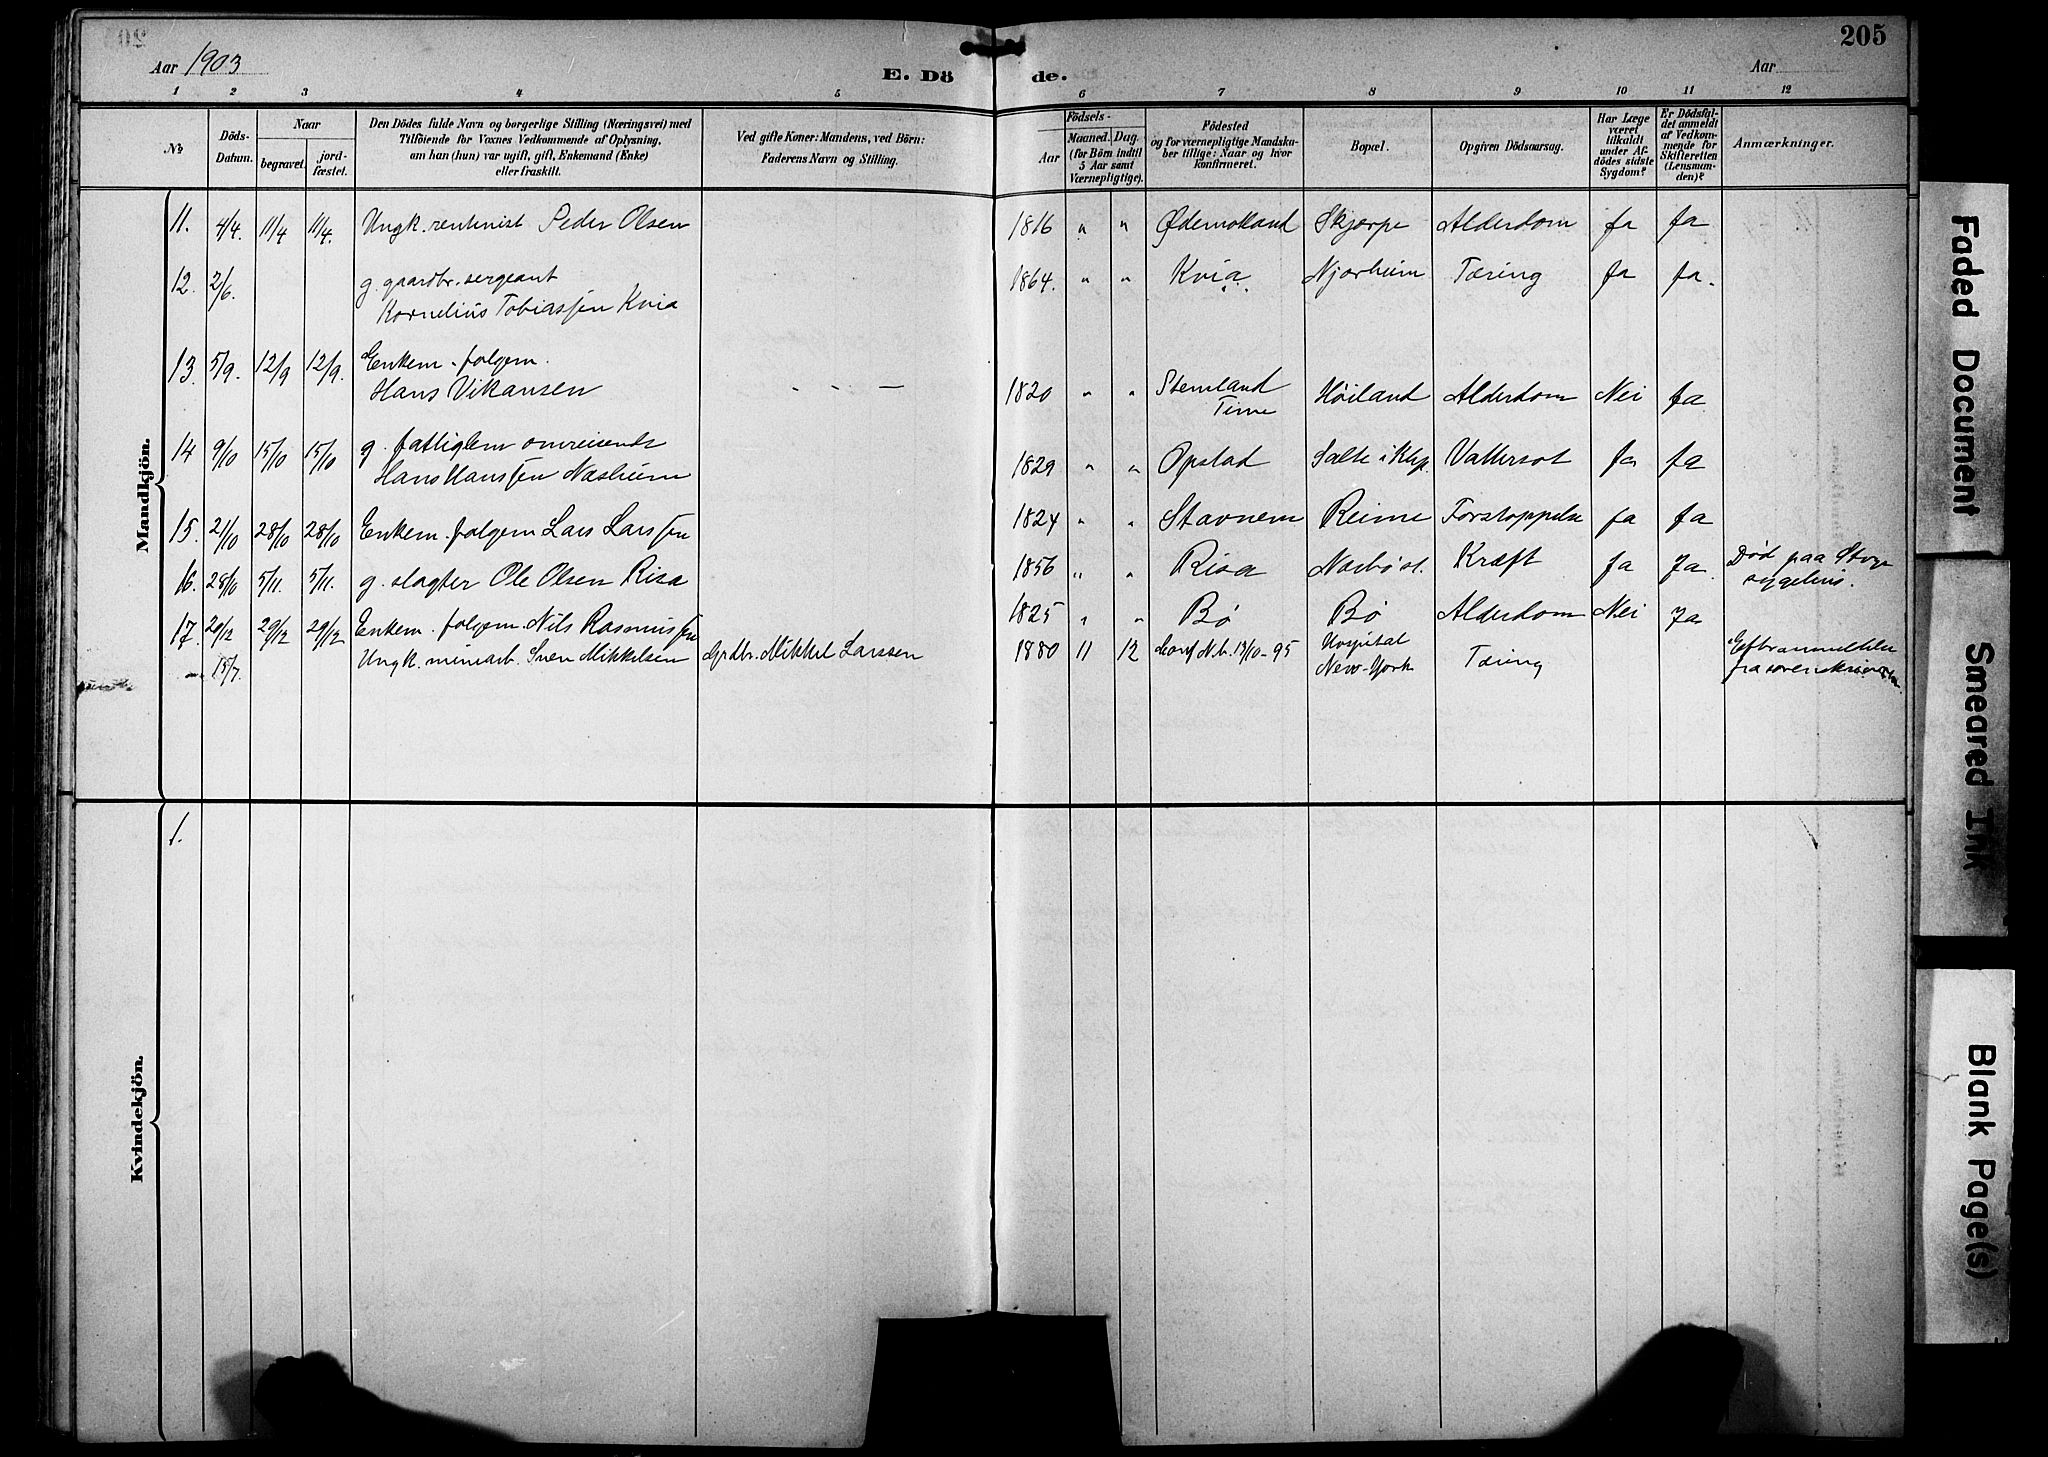 205
Aar 1903
E. Dö de.
Aar
1 2 3 4 5 6 7 8 9 10 11 12
No
Döds-Datum.
Naar
begravet.
jord-fæstet.
Den Dödes fulde Navn og borgerlige Stilling (Næringsvei) med
Tilföiende for Voxnes Vedkommende af Oplysning,
om han (hun) var ugift, gift, Enkemand (Enke)
eller fraskilt.
Ved gifte Koner: Mandens, ved Börn:
Faderens Navn og Stilling.
Födsels-
Aar
Maaned. Dag.
(for Börn indtil
5 Aar samt
Værnepligtige).
Födested
og for værnepligtige Mandska-
ber tillige: Naar og hvor
konfirmeret.
Bopæl.
Opgiven Dödsaarsag.
Har Læge
været
tilkaldt
under Af-
dödes sidste
Sygdom?
Er Dödsfal-
det anmeldt
af Vedkom-
mende for
Skifteretten
(Lensman-
den)?
Anmærkninger.
Mandkjön.
11. 4/4. 11/4 11/4. Ungk. rentenist Peder Olsen 1816 " " Ødemotland Skjærpe Alderdom Ja Ja
12. 2/6. g. gaardbr. sergeant
Kornelius Tobiassen Kvia 1864. " " Kvia Njærheim Tæring Ja Ja.
13. 5/9. 12/9 12/9. Enkem. folgem.
Hans Vikansen 1820 " " Stemland
Time Høiland Alderdom Nei Ja
14 9/10 15/10 15/10 g. fattiglem omreisende
Hans Hanssen Næsheim 1829 " " Opstad Salte i Klp. Vattersot Ja Ja
15. 21/10 28/10 28/10 Enkem. folgem Lars Larssen 1824 " " Stavnem Reime Forstoppelse Ja Ja
16. 28/10 5/11. 5/11. g. slagter Ole Olsen Risa 1856 " " Risa Nærbø st. Kræft Ja Ja. Død paa
sygehus.
17. 20/12 29/12 29/12 Enkem. folgem. Nils Rasmussen 1825 " " Bø Bø Alderdom Nei Ja
15/7. Ungk. minearb. Sven Mikkelsen Grdbr. Mikkel Larssen 1880 11 12 Conf N.b. 13/10-95 Hospital
New-York Tæring Efter anmeldelse
fra sorenskriveren.
Kvindekjön.
1.
Faded Document
Smeared Ink
Blank Page(s)